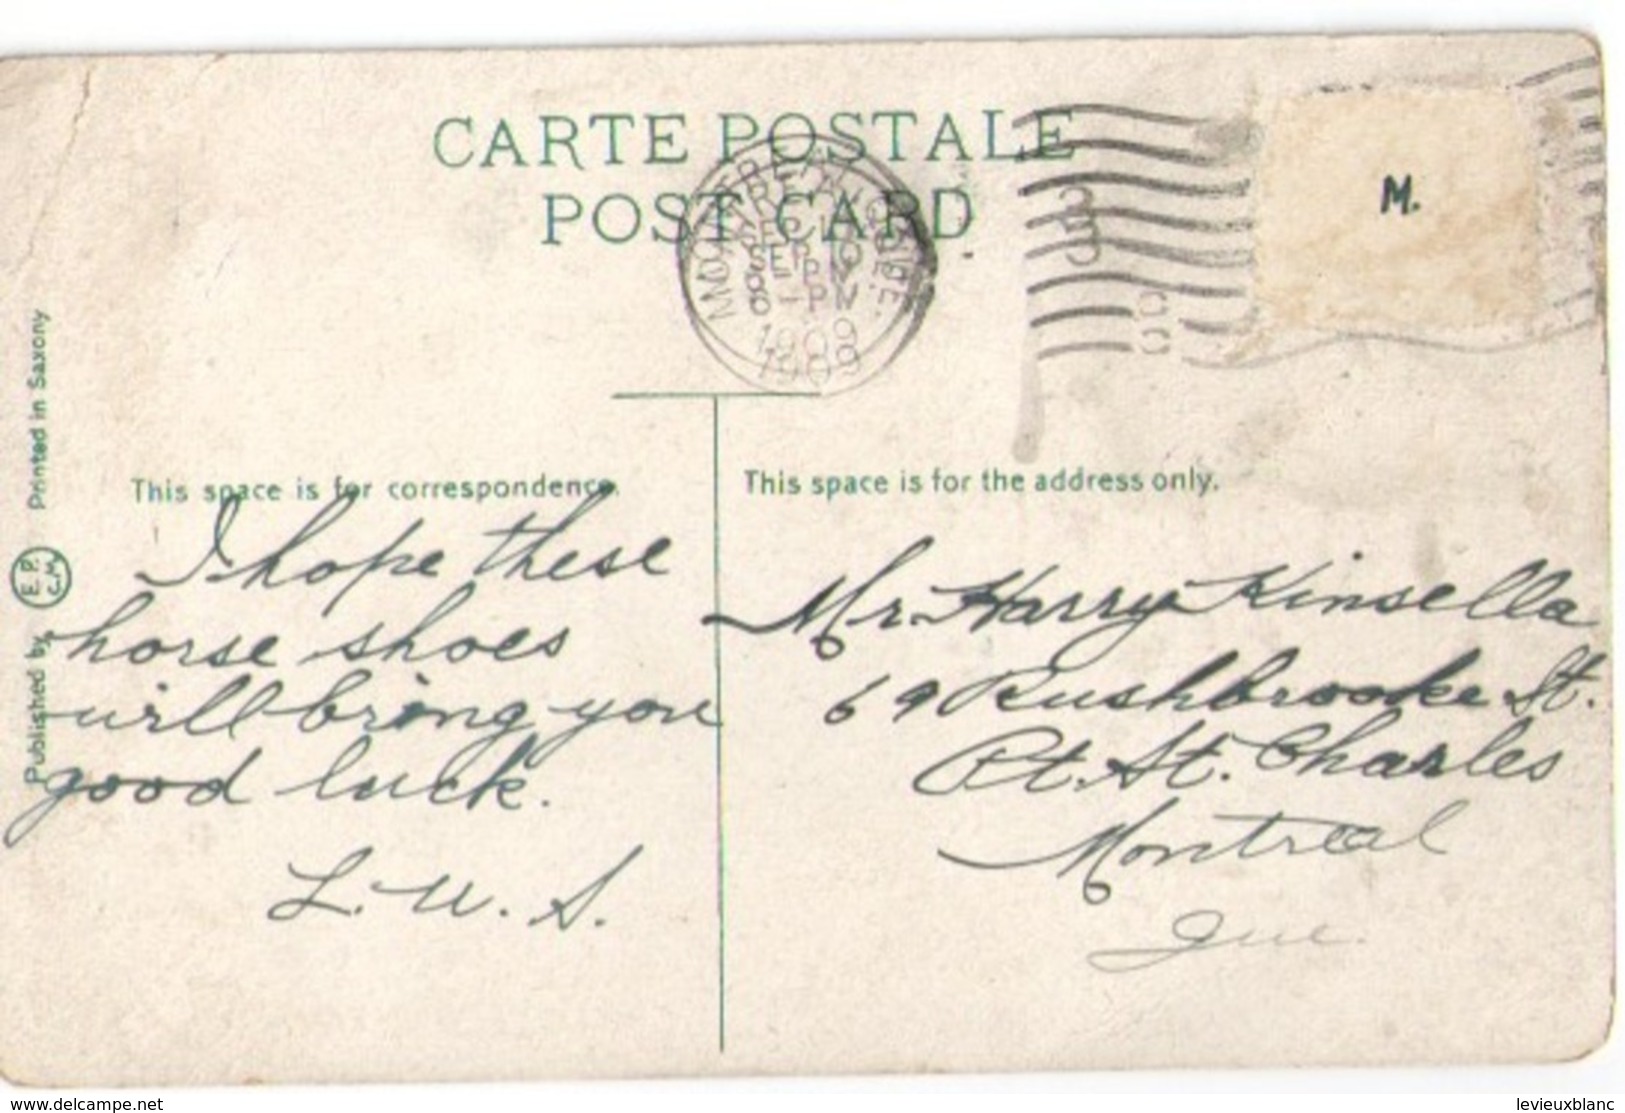 CARTE POSTALE
POST CARD
1909
M.
Printed in Saxony
E.P.
C.M.
Published by
This space is for correspondence.
I hope these
horse shoes
will bring you
good luck.
L. W. S.
This space is for the address only.
Mr. Harry Kinsella
69 Rushbrooke St.
Pt. St. Charles
Montreal
Que.
delcampe.net
levieuxblanc